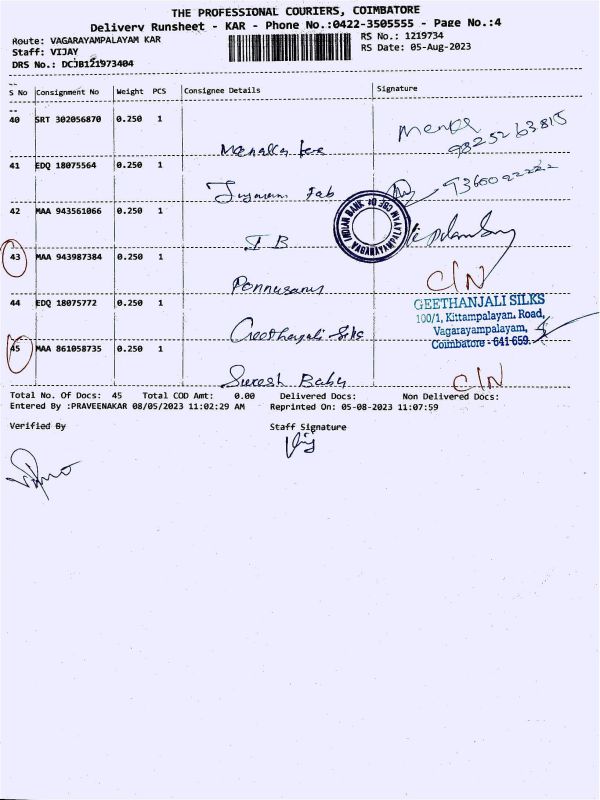 THE PROFESSIONAL COURIERS, COIMBATORE
Delivery Runsheet - KAR - Phone No.:0422-3505555 - Page No.:4
Route: VAGARAYAMPALAYAM KAR
RS No.: 1219734
Staff: VIJAY
RS Date: 05-Aug-2023
DRS No.: DCJB121973404
S No Consignment No Weight PCS Consignee Details Signature
40 SRT 302056870 0.250 1
98252 63815
41 EDQ 18075564 0.250 1
Fab
42 MAA 943561066 0.250 1
I B
INDIAN BANK
VAGARAYAMPALAYAM
43 MAA 943987384 0.250 1
Ponnusamy
C/N
44 EDQ 18075772 0.250 1
Geethanjali Silks
GEETHANJALI SILKS
100/1, Kittampalayan. Road,
Vagarayampalayam,
Coimbatore - 641 659.
45 MAA 861058735 0.250 1
Suresh Babu
C/N
Total No. Of Docs: 45 Total COD Amt: 0.00 Delivered Docs: Non Delivered Docs:
Entered By :PRAVEENAKAR 08/05/2023 11:02:29 AM Reprinted On: 05-08-2023 11:07:59
Verified By Staff Signature